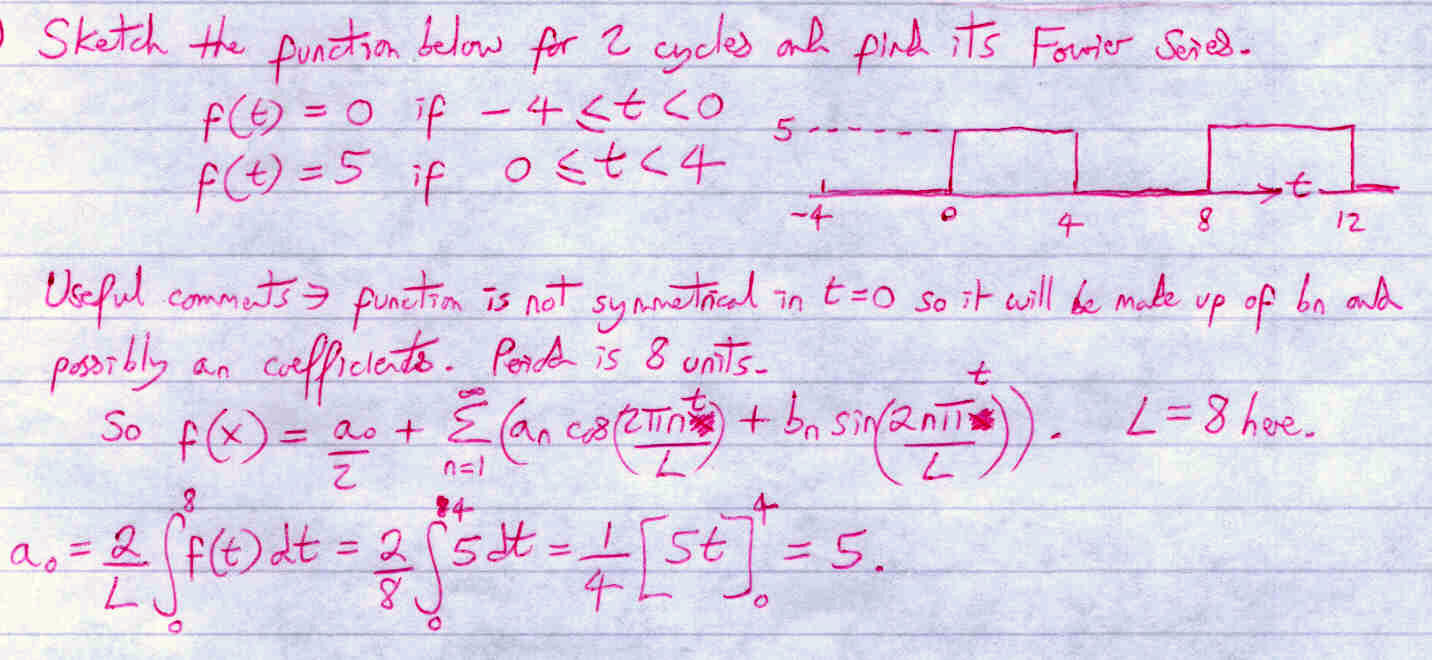 Sketch the function below for 2 cycles and find its Fourier Series.
f(t) = 0 if -4 ≤ t < 0
f(t) = 5 if 0 ≤ t < 4
5
-4 0 4 8 t 12
Useful comments → function is not symmetrical in t=0 so it will be made up of bn and
possibly an coefficients. Period is 8 units.
So f(x) = a₀/2 + ∑_{n=1}^{∞} (aₙ cos(2πnt/L) + bₙ sin(2nπt/L)). L = 8 here.
a₀ = 2/L ∫₀⁸ f(t) dt = 2/8 ∫₀⁴ 5 dt = 1/4 [5t]₀⁴ = 5.